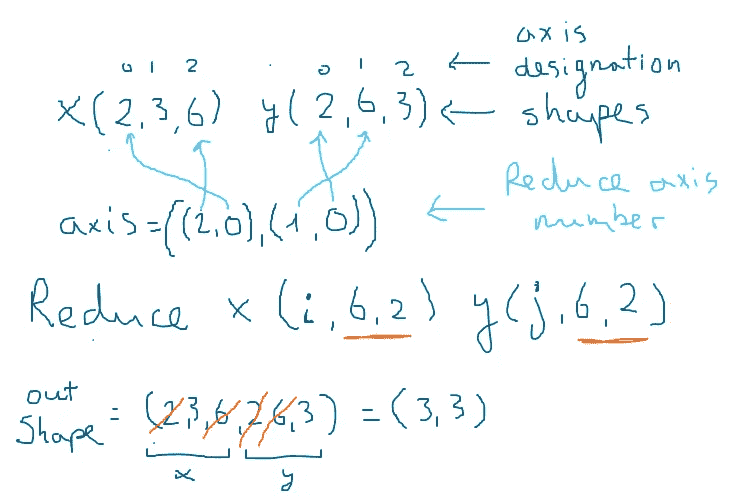 axis
0 1 2 0 1 2 ← designation
x(2,3,6) y(2,6,3) ← shapes
axis=((2,0),(1,0)) ← Reduce axis
number
Reduce x(i,6,2) y(j,6,2)
out
Shape = (2,3,6,2,6,3) = (3,3)
x y